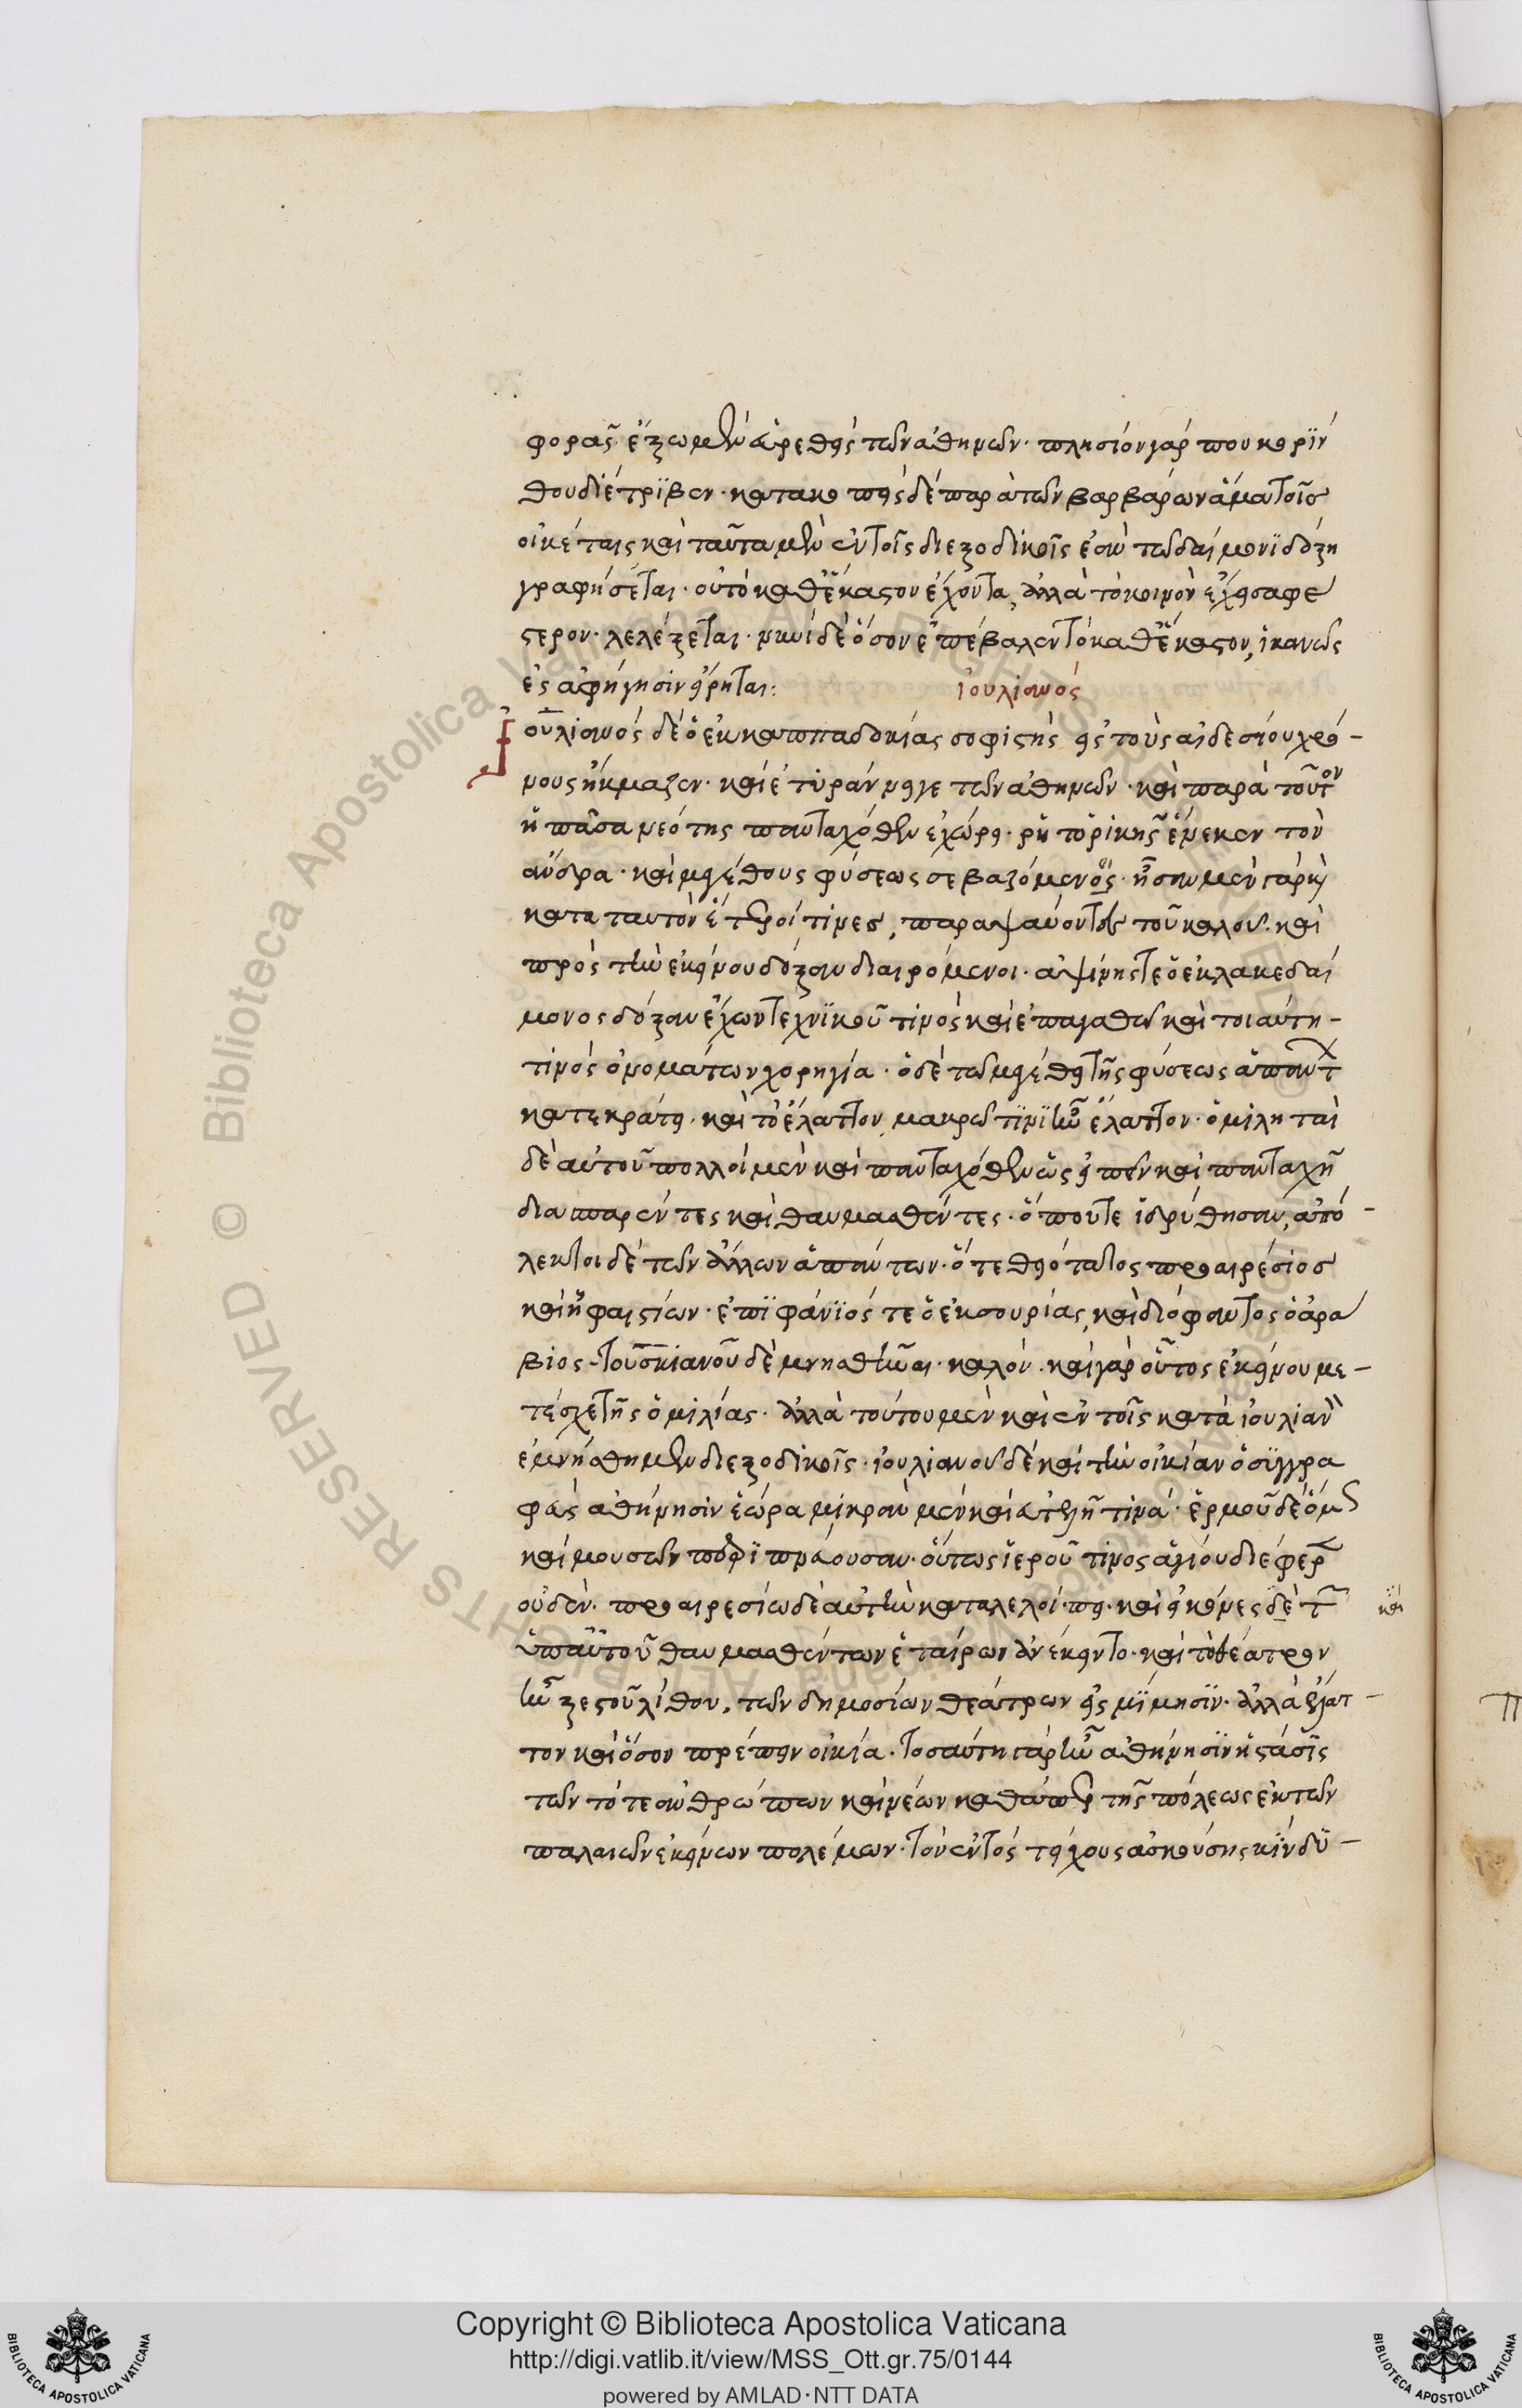 φορᾶς· ἔξω μὲν εὑρεθεὶς τῶν ἀθηνῶν· πλησίον γάρ που κορϊν
θου διέτριβεν· κατακοπεὶς δὲ παρὰ τῶν βαρβάρων ἅμα τοῖς
οἰκέταις καὶ ταῦτα μὲν ἐν τοῖς διεξοδικοῖς ἐὰν τῶ δαίμονϊ δόξη
γραφήσεται· οὐ τὸ καθέκαστον ἔχοντα, ἀλλὰ τὸ κοινὸν ἐκεῖ σαφέ
στερον· λελέξεται· νυνὶ δὲ ὅσον ἐπέβαλεν τὸ καθέκαστον, ἱκανῶς
ἐς ἀφήγησιν εἴρηται:
ἰουλιανός
Ἰουλιανὸς δὲ ὁ ἐκ καππαδοκίας σοφιστὴς εἰς τοὺς αἰδεσίου χρό-
νους ἤκμαζεν· καὶ ἐτυράννει γε τῶν ἀθηνῶν· καὶ παρὰ τοῦτον
ἡ πᾶσα νεότης πανταχόθεν ἐχώρει· ῥητορικῆς ἕνεκεν τὸν
ἄνδρα· καὶ μεγέθους φύσεως σεβαζόμενος· ἦσαν μὲν γὰρ καὶ
κατα ταυτὸν ἕτεροί τινες, παραψαύοντες τοῦ καλοῦ· καὶ
πρὸς τὴν ἐκείνου δόξαν διαιρόμενοι· ἀψίνης τε ὁ ἐκ λακεδαί
μονος δόξαν ἔχων τεχνϊκοῦ τινὸς καὶ ἐπάγαθων καὶ τοιαύτη-
τινὸς ὀνομάτων χορηγία· ὁ δὲ τῶ μεγέθει τῆς φύσεως ἁπάντων
κατεκράτει· καὶ τὸ ἔλαττον μακρῶ τϊνϊ ἦν ἔλαττον· ὁμιληταὶ
δὲ αὐτοῦ πολλοὶ μὲν καὶ πανταχόθεν ὡς εἰπεῖν καὶ πανταχῆ
διασπαρέντες καὶ θαυμασθέντες· ὅπου τε ἱδρύθησαν, ἀπό-
λεκτοι δὲ τῶν ἄλλων ἁπάντων· ὅ τε θειότατος προαιρέσιος
καὶ ἡφαιστίων· ἐπϊφάνϊός τε ὁ ἐκ συρίας, καὶ διόφαντος ὁ ἀρά
βιος- τουσκιανοῦ δὲ μνησθῆναι· καλόν· καὶ γὰρ οὗτος ἐκείνου με-
τέσχε τῆς ὁμιλίας· ἀλλὰ τούτου μὲν καὶ ἐν τοῖς κατὰ ἰουλιανὸν
ἐμνήσθημεν διεξοδικοῖς· ἰουλιανοῦ δὲ καὶ τὴν οἰκίαν ὁ συγγρα
φεὺς ἀθήνησιν ἑώρα μικρὰν μὲν καὶ εὐτελῆ τινά· ἑρμοῦ δὲ ὅμως
καὶ μουσῶν περιπνέουσαν· οὕτως ἱεροῦ τινος ἁγίου διέφερεν
οὐδέν· προαιρεσίω δὲ αὐτὴν καταλελοίπει· καὶ εἰκόνες δὲ τῶν
καὶ
ὑπ αὐτοῦ θαυμασθέντων ἑταίρων ἀνέκειντο· καὶ τὸ θέατρον
ἦν ξεστοῦ λίθου, τῶν δημοσίων θεάτρων εἰς μΐμησϊν· ἀλλὰ ἔλατ-
τον καὶ ὅσον πρέπειν οἰκία· τοσαύτη γὰρ ἦν ἀθήνησϊν ἡ στάσις
τῶν τότε ἀνθρώπων καὶ νέων καθάπερ τῆς πόλεως ἐκ τῶν
παλαιῶν ἐκείνων πολέμων· τὸν ἐντὸς τείχους ἀσκούσης κίνδυ-
Copyright © Biblioteca Apostolica Vaticana
http://digi.vatlib.it/view/MSS_Ott.gr.75/0144
powered by AMLAD·NTT DATA